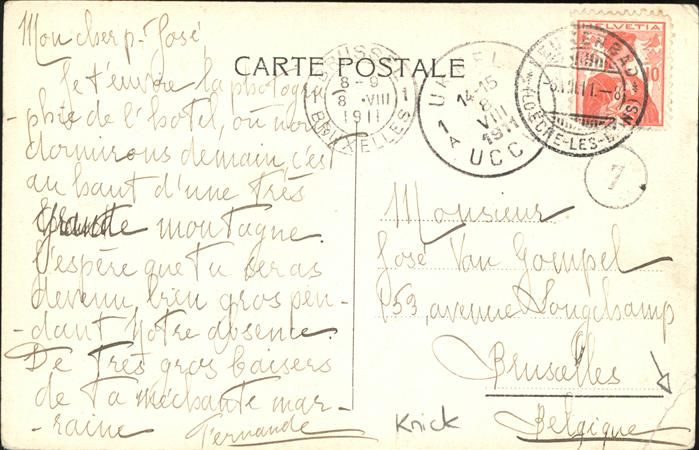 Mon cher p. José
Je t'envoie la photogra-
phie de l'hotel, où nous
dormirons demain, c'est
au haut d'une très
grande montagne.
J'espère que tu seras
devenu, bien gros pen-
-dant notre absence.
De très gros baisers
de ta méchante mar-
-raine Fernande
CARTE POSTALE
BRUSSEL
8-9
1 8 VIII 1
1911
BRUXELLES
UKKEL
14-15
8
VIII
1911
1A
UCC
HELVETIA
10
LEUKERBAD
(LOÈCHE-LES-BAINS)
7
Monsieur
José Van Gompel
153, avenue Longchamp
Bruxelles
Belgique
Knick